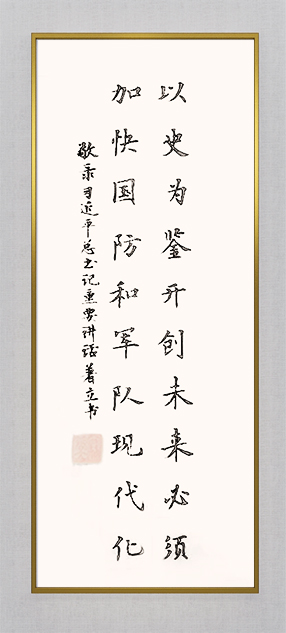 以史为鉴开创未来必须
加快国防和军队现代化
敬录习近平总书记重要讲话著立书